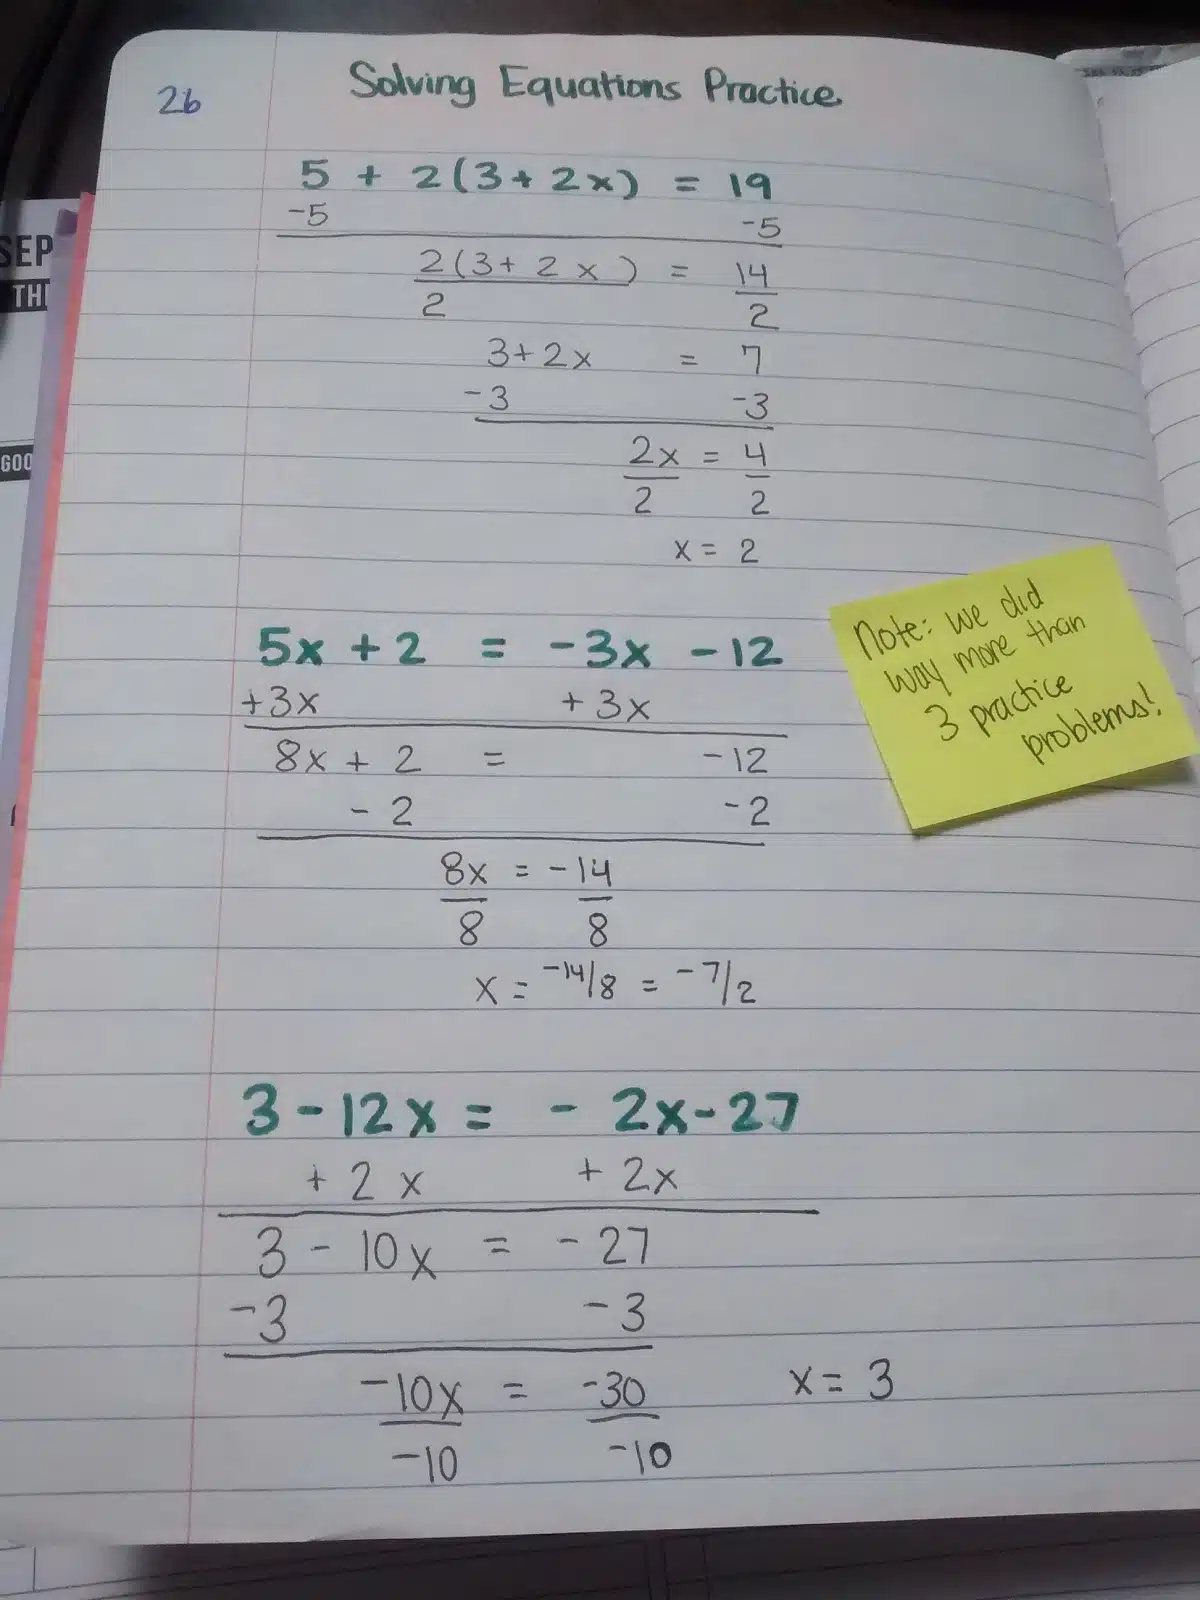 26
Solving Equations Practice
5 + 2(3+2x) = 19
-5 -5
2(3+ 2x) = 14
2 2
3+2x = 7
-3 -3
2x = 4
2 2
x = 2
5x + 2 = -3x - 12
+3x +3x
8x + 2 = -12
- 2 -2
8x = -14
8 8
x = -14/8 = -7/2
Note: we did
way more than
3 practice
problems!
3 - 12x = - 2x - 27
+ 2x + 2x
3 - 10x = - 27
-3 -3
-10x = -30 x = 3
-10 -10
SEP
TH
GOO